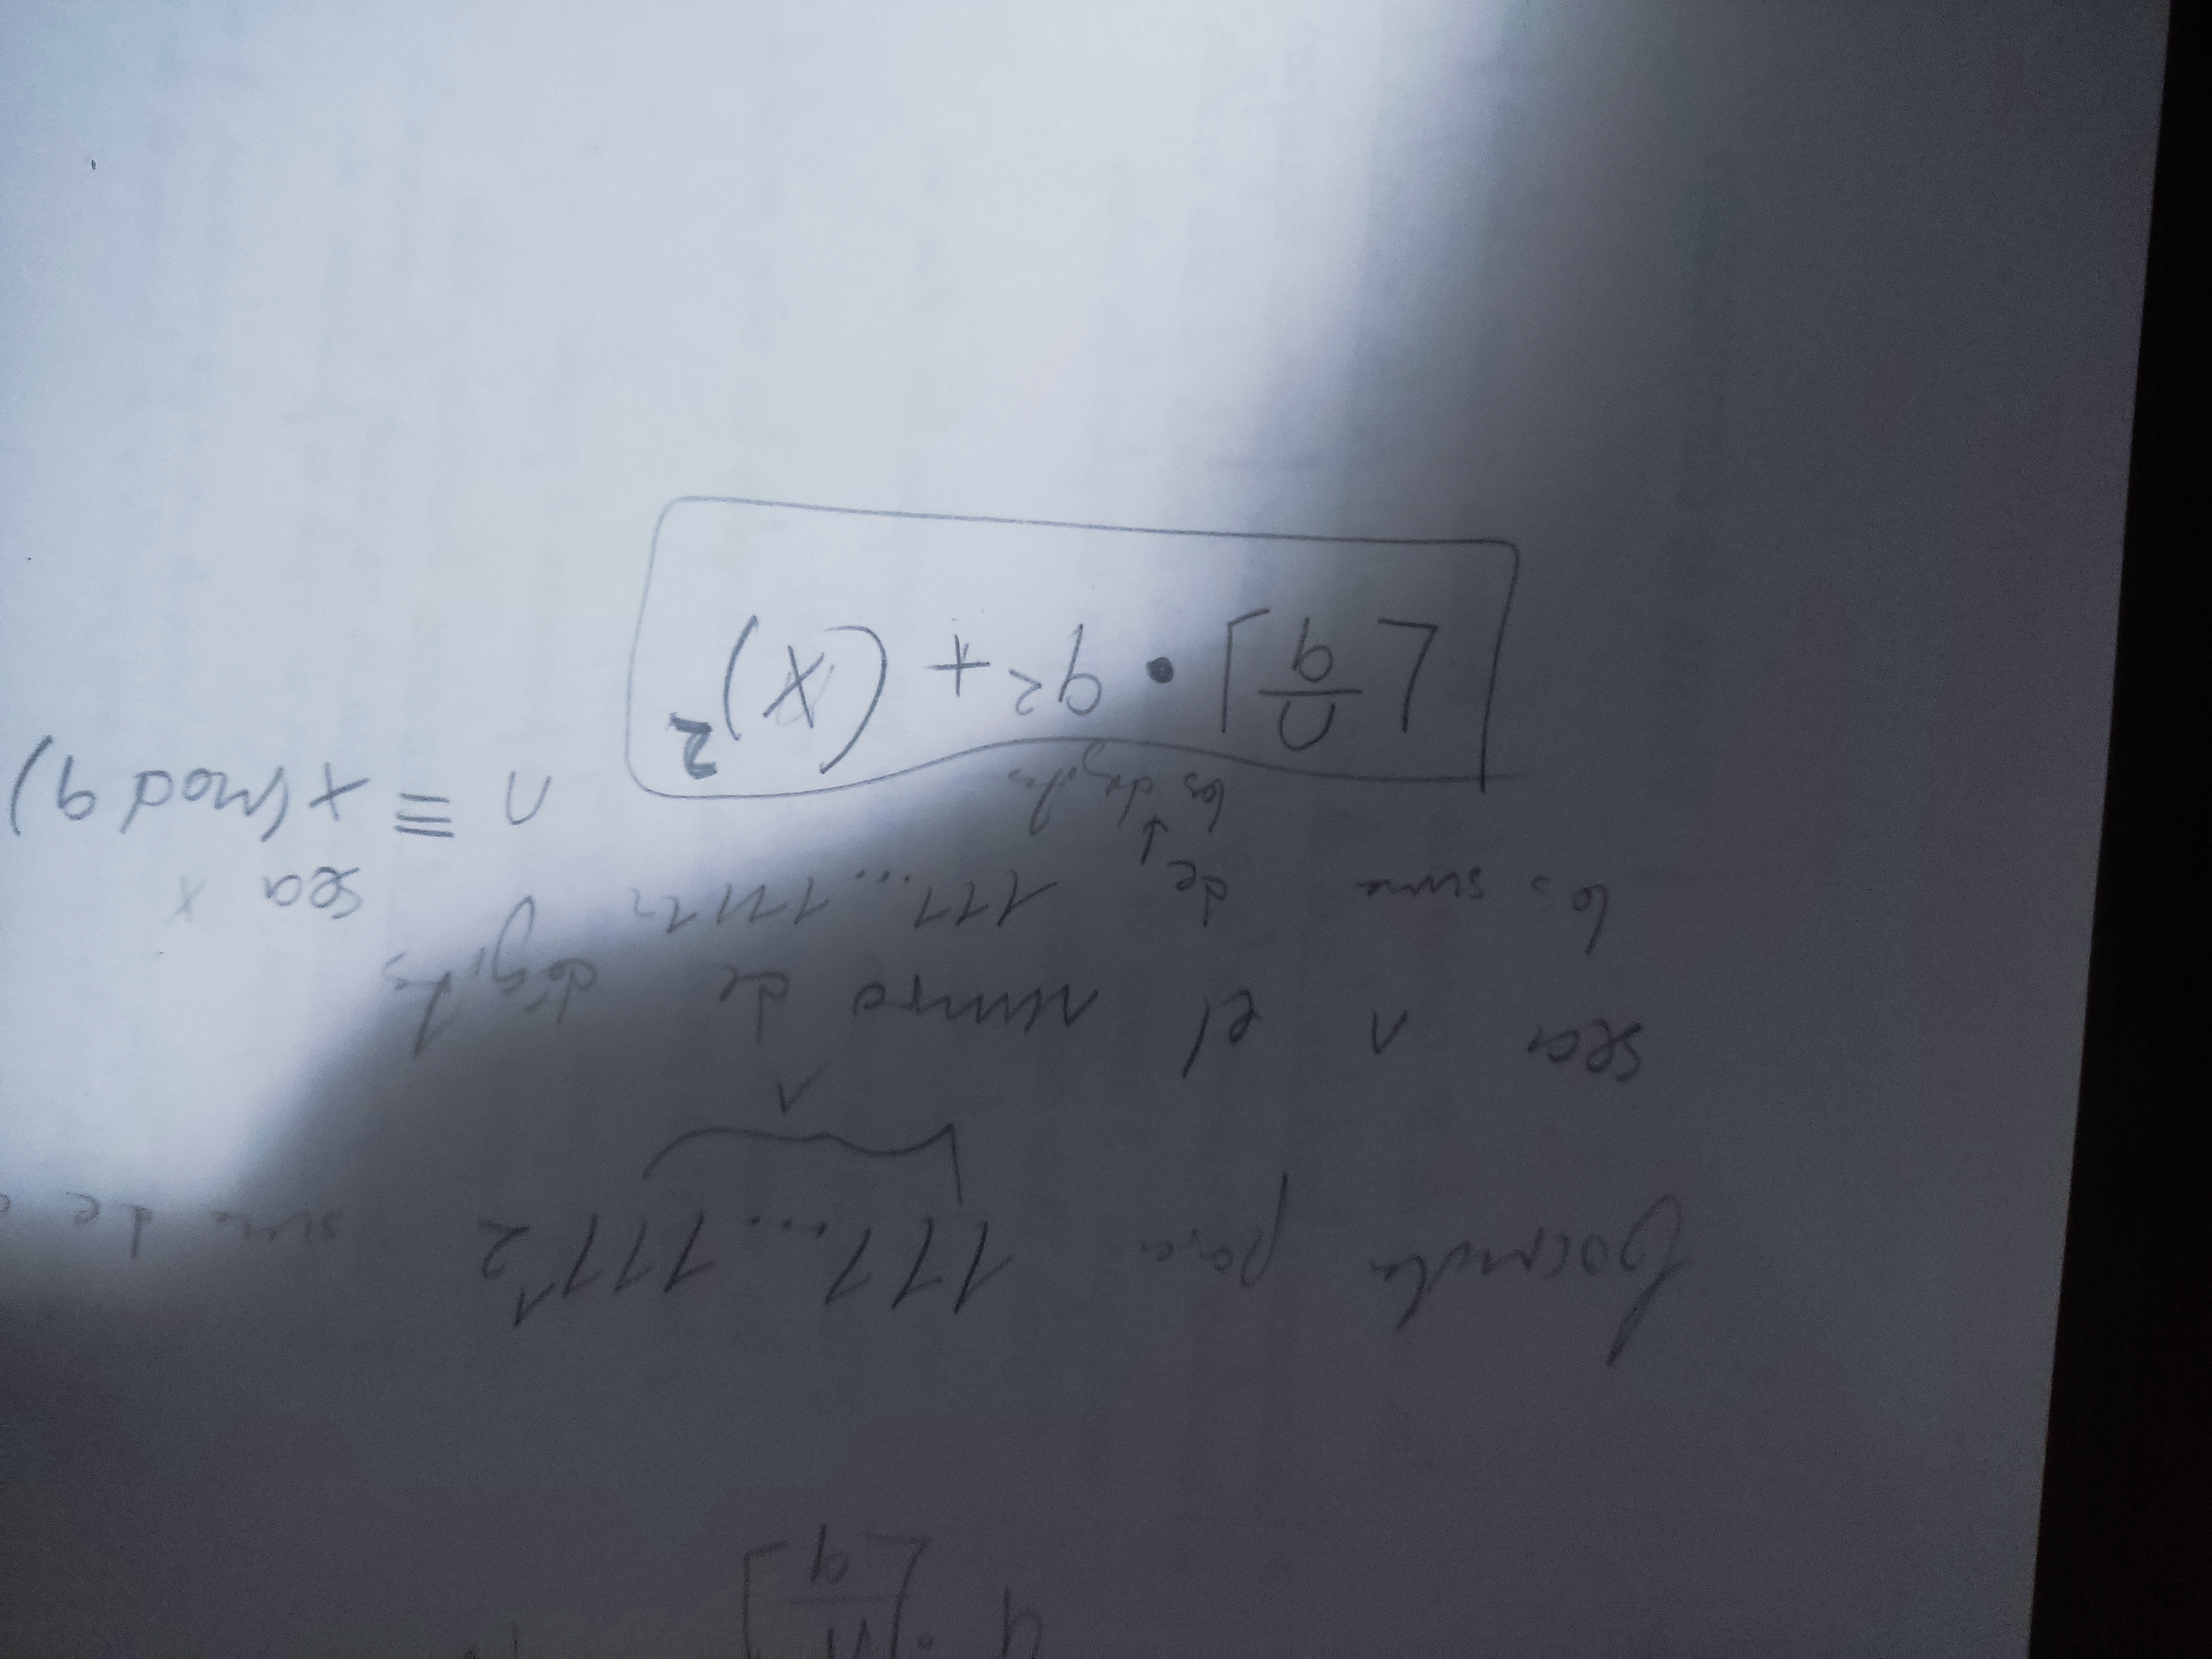 ⌊n/9⌋
formula para 111...111^2 suma de
n
sea n el numero de dígitos
la suma de 111...1111^2
los dígitos
sea x
n ≡ x (mod 9)
⌊n/9⌋ • 9² + (x)²